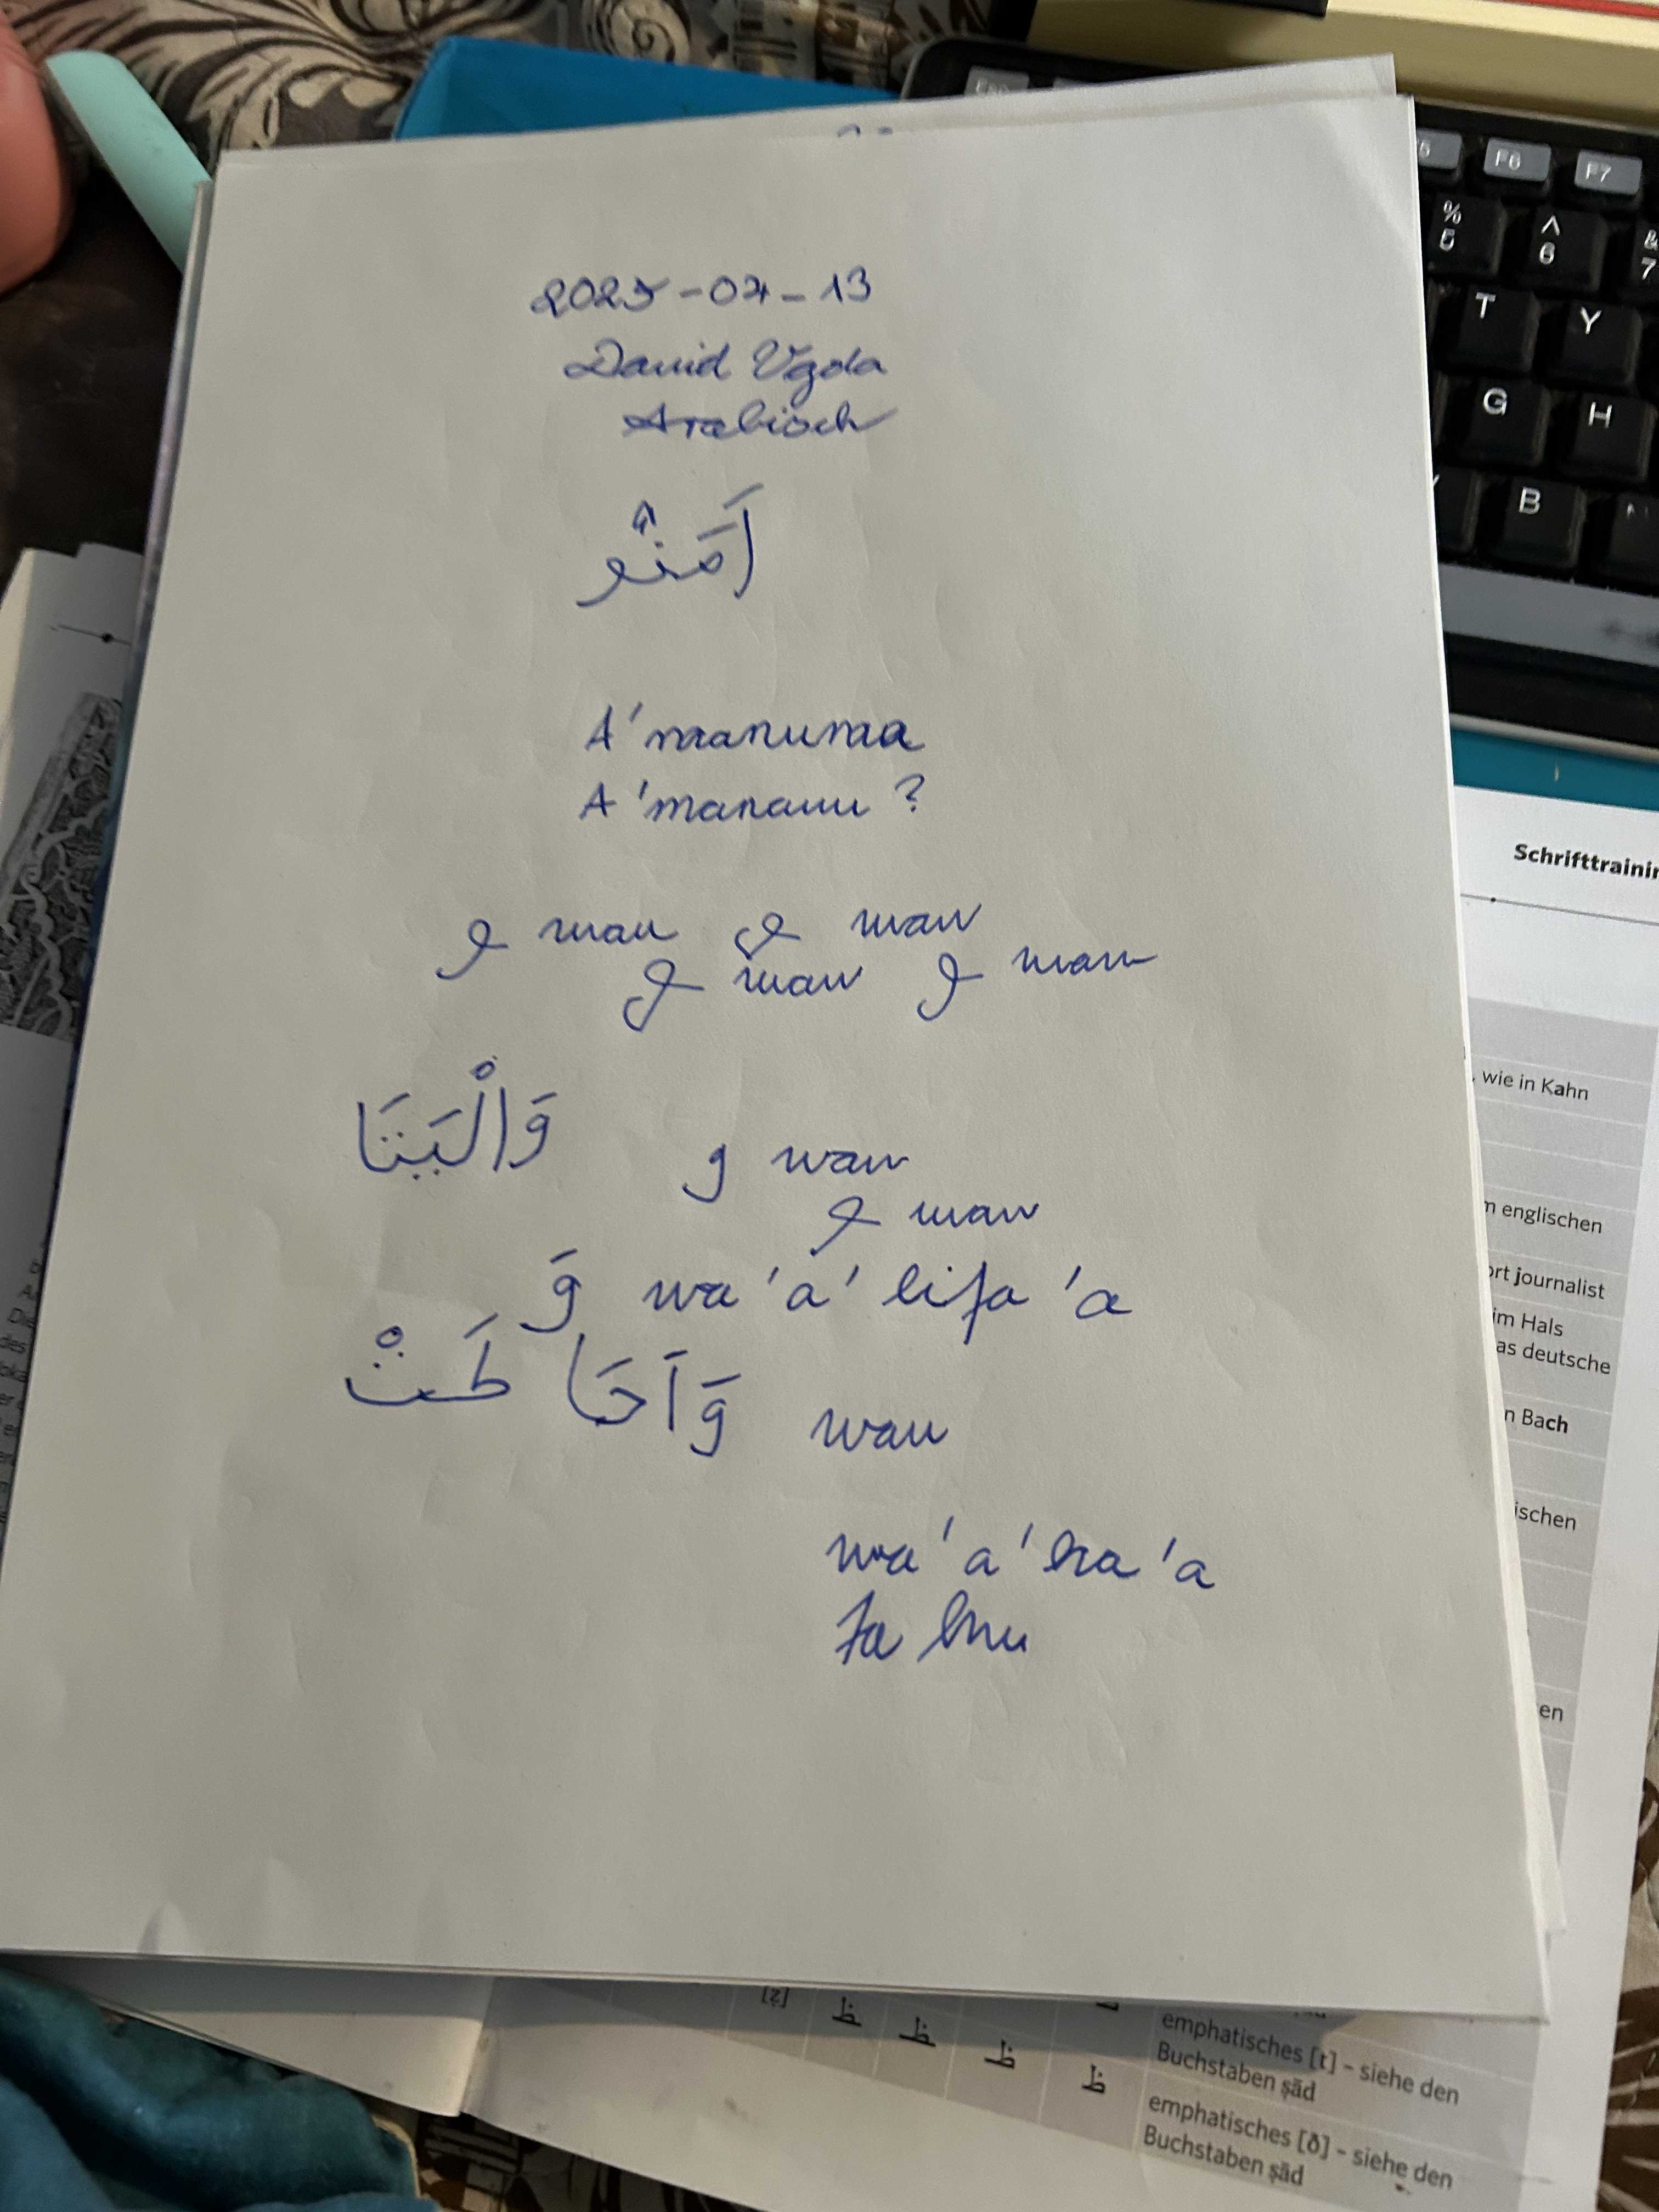 2025-07-13
David Vgda
Arabisch
A'manuma
A'manauu ?
و wau و waw
و waw و waw
وَالْبَتَا و waw
و waw
وَ wa'a'lifa'a
وَاَحَا طَتْ wau
wa'a'ha'a
F5 F6 F7
% 5 ^ 6 & 7
T Y
G H
B
Schrifttraini
wie in Kahn
englischen
ort journalist
im Hals
as deutsche
n Bach
ischen
en
[ẓ] ظ ظ ظ ظ
emphatisches [t] – siehe den
Buchstaben ṣād
emphatisches [ð] – siehe den
Buchstaben ṣād